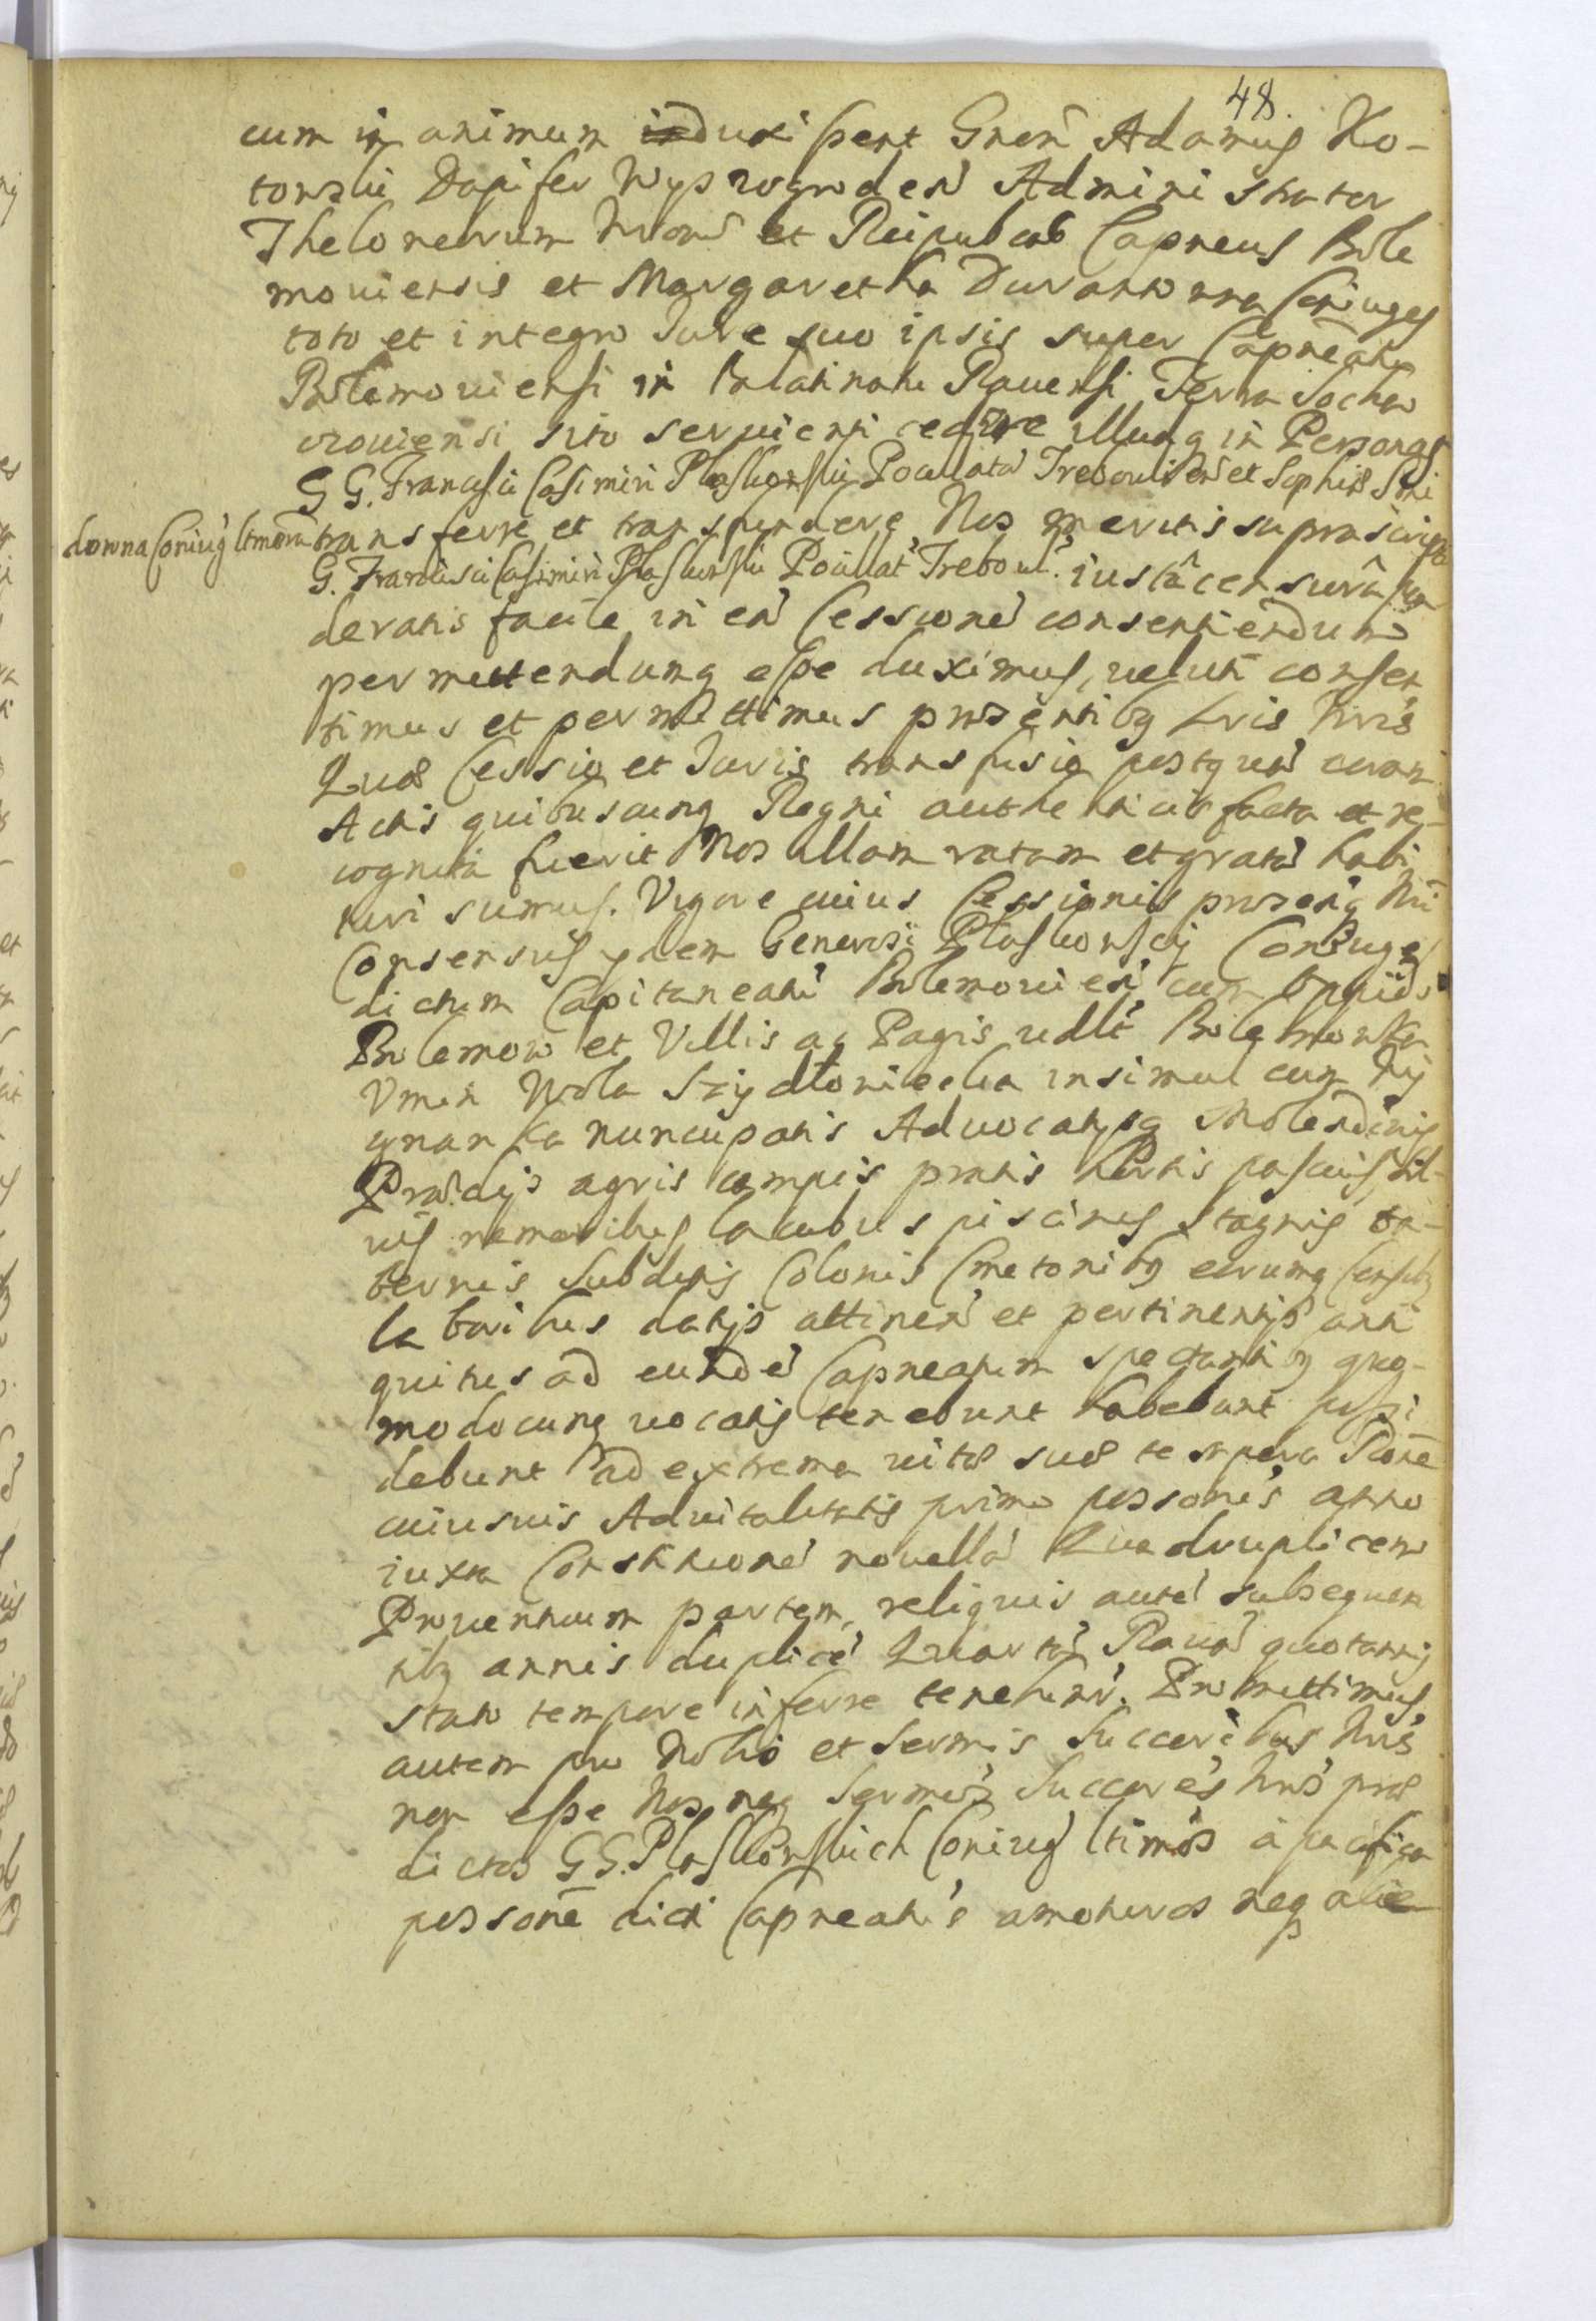 48.
cum in animum induxissent Gnen̄ Adamus Ko-
towski Dapifer Wyszogroden̄ Admini strator
Theloneorum Nrorū et Reipublcæ Capneus Bole
moviensis et Margaretha Durantowna Coniuges
toto et integro Iure suo ipsis super Capneatu
Bolemoviensi in Palatinatu Ravensi Terra Socha
czoviensi sito servienti cedere illudq in Personas
G G. Francisci Casimiri Plaskowski Pocillatoř Trebovlien̄ et Sophiæ
downa Coniug̃ ltmorū transferre et transfundere, Nos meritis suprascripti
G. Francisci Casimiri Plaskowski Pocillat̃ Trebovl. iustâ censurâ pon
deratis facile in eā Cessionē consentiendum
permittendumq esse duximus, veluti consen
timus et permittimus præsentibq Lris Nris
Quæ Cessio et Iuris transfusio postquā coram
Actis quibuscunq Regni authenticis facta et re-
cognita fuerit Nos illam ratam et gratā habi
turi sumus. Vigore cuius Cessionis præsentisq Nri
Consensus ydem Generosi Plaskowscij Coniuges
dictum Capitaneatū Bolemovien̄ cum Oppido
Bolemow et Villis ac Pagis vdlt̄ Bolemowska
Wola Szydłowiecka insimul cum
nuncupatis Advocatysq Molendinis
Prædijs agris campis pratis hortis pascuis sil-
vis nemoribus lacubus piscinis stagnis ta-
bernis Subditis Colonis Cmetonibq eorumq Censibq
laboribus datijs attinen̄ et pertinentijs anti
quitus ad eundē Capneatum spectantibq quo-
modocunq vocatis tenebunt habebunt possi
debunt ad extrema vitæ suæ tempora Rōne
cuiusvis Advitalitatis primo possonis anno
iuxta Constitutionē novellā Quadruplicem
Proventuum partem, reliquis autē subsequen
tibq annis duplicē Quartā Ravā quotannis
stato tempore inferre tenebunt. Promittimus
autem pro Nobis et Sermis Succoribus Nris
non esse Nos neq Sermos Succores Nros præ
dictos GG. Plaskowskich Coniug̃ ltimos à pacifica
possonē dicti Capneatus amoturos neq alie